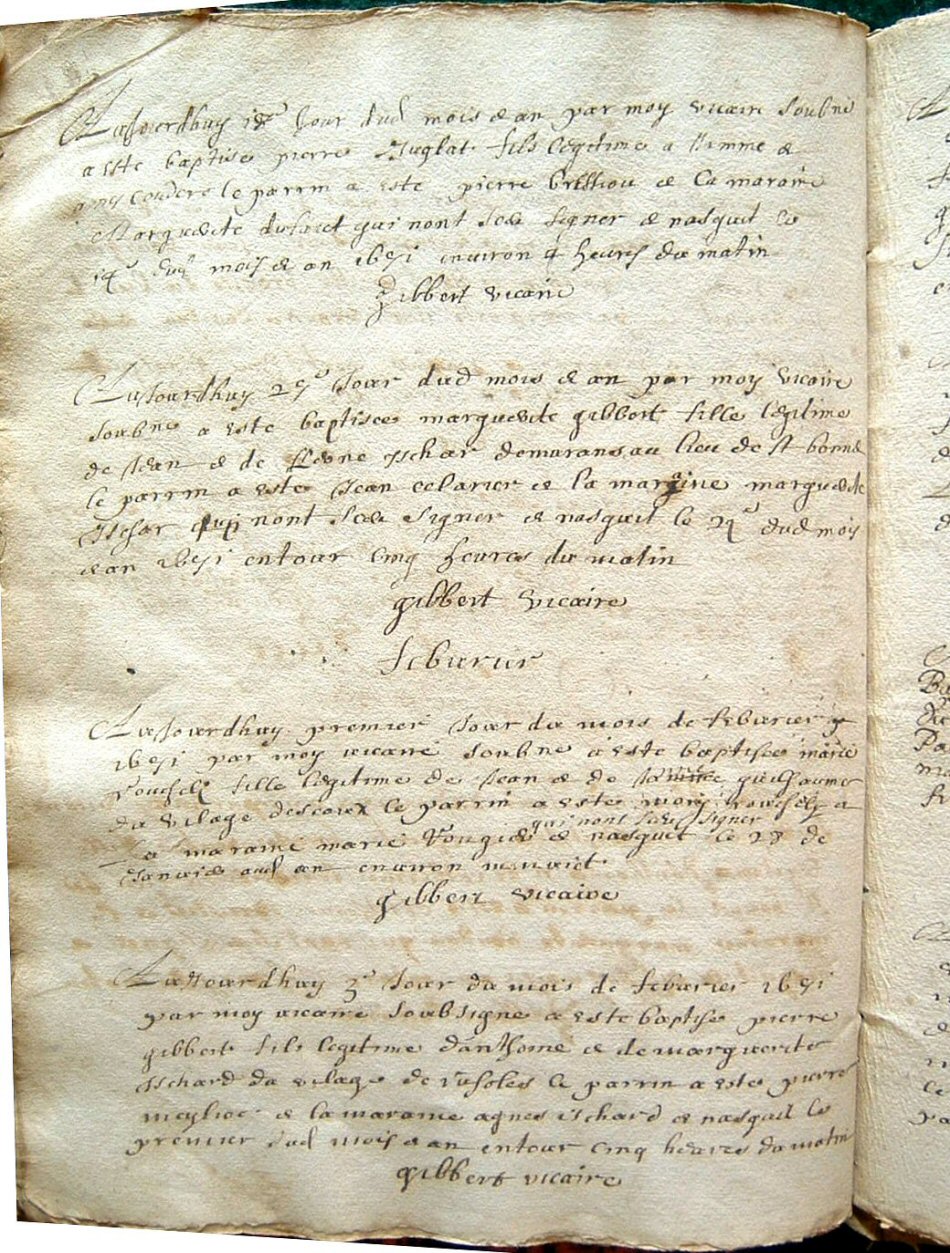 Aujourdhuy jour dud mois & an par moy vicaire soubne
a este baptise pierre Juglat fils legitime a &
le parrin a este pierre & la maraine
Marguerite qui nont seu signer & nasquit le
14e dud mois & an 1651 environ 4 heures du matin
gibbert vicaire
Aujourdhuy jour dud mois & an par moy vicaire
soubne a este baptisee marguerite gibbert fille legitime
de Jean & de Ischar au lieu de St bonne
le parrin a este Jean celarier & la maraine marguerite
Ischar qui nont seu signer & nasquit le dud mois
& an 1651 entour cinq heures du matin
gibbert vicaire
feburier
Aujourdhuy premier jour du mois de feburier
1651 par moy vicaire soubne a este baptisee marie
fille legitime de Jean & de guilhaume
du vilage le parrin a este &
qui nont seu signer
la maraine marie & nasquit le 28 de
Janvier aud an environ minuict
gibbert vicaire
Aujourdhuy 3e jour du mois de feburier 1651
par moy vicaire soubsigne a este baptise pierre
gibbert fils legitime danthoine & de marguerite
Ischard du vilage de le parrin a este pierre
& la maraine agnes Ischard & nasquit le
premier dud mois & an entour cinq heures du matin
gibbert vicaire